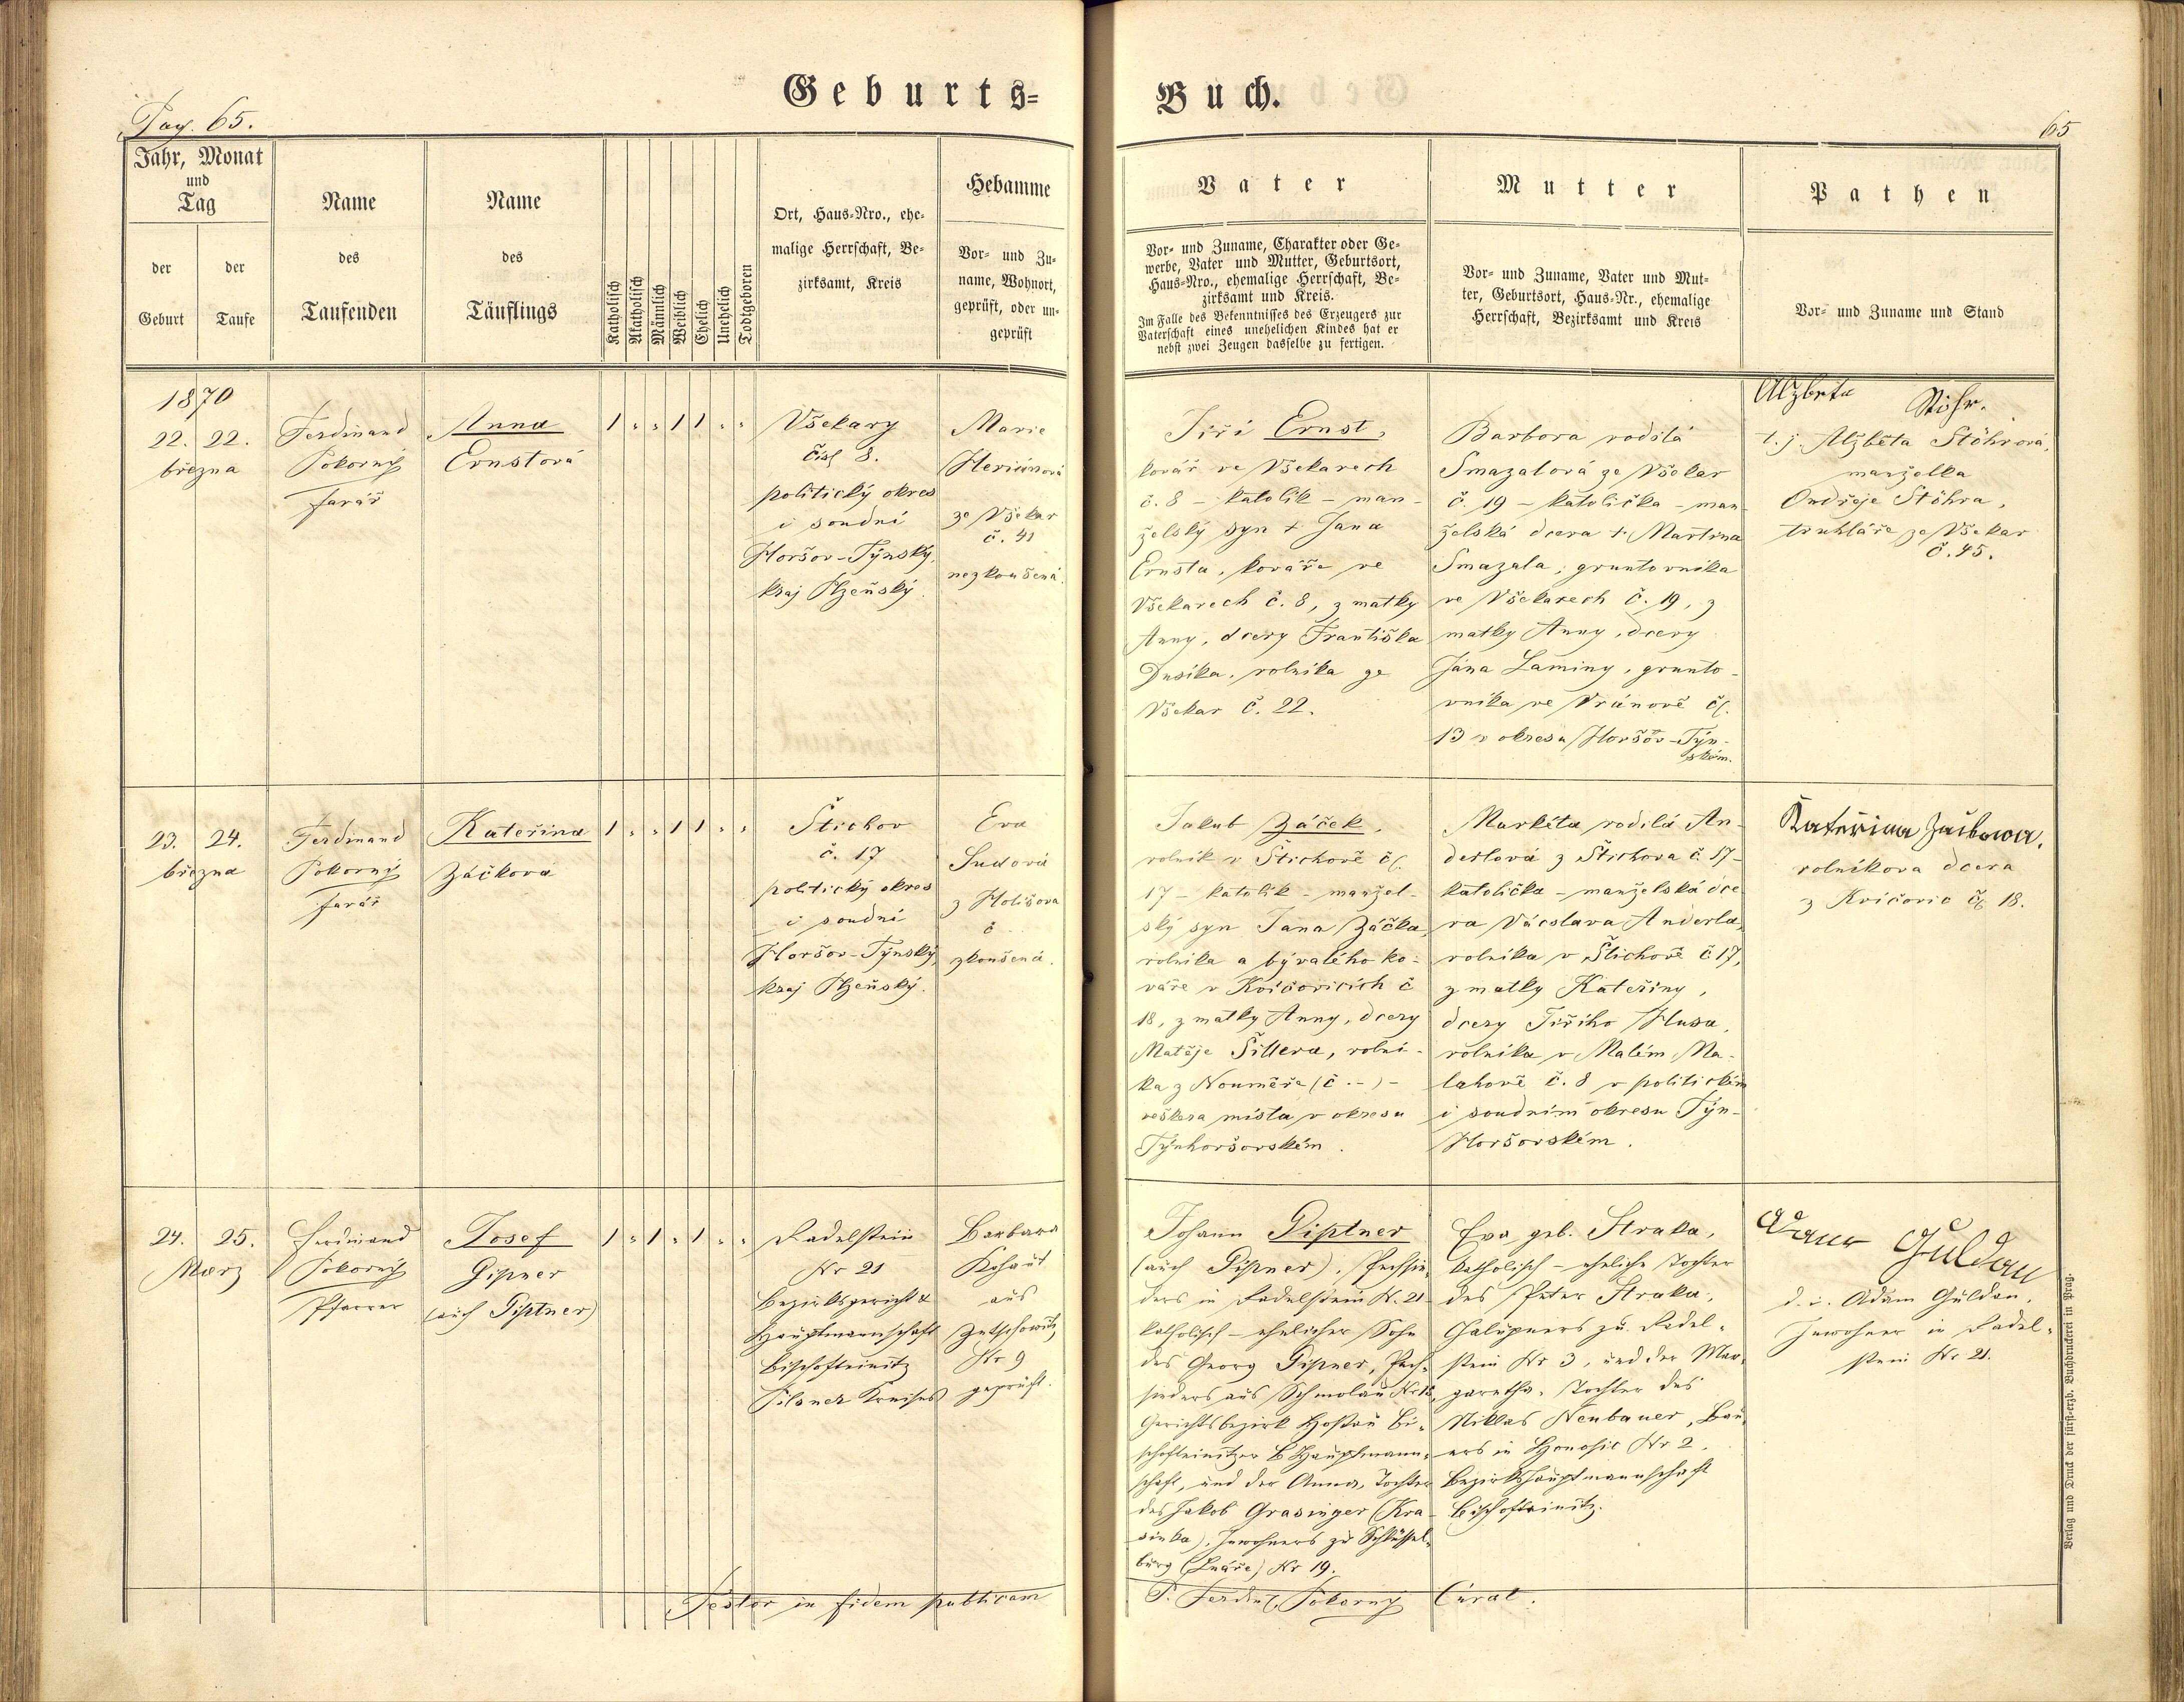 Geburts-
Pag. 65.
Jahr, Monat
und
Tag
der
Geburt
der
Taufe
Name
des
Taufenden
Name
des
Täuflings
Katholisch
Akatholisch
Männlich
Weiblich
Ehelich
Unehelich
Todtgeboren
Ort, Haus-Nro., ehe-
malige Herrschaft, Be-
zirksamt, Kreis
Hebamme
Vor- und Zu-
name, Wohnort,
geprüft, oder un-
geprüft
1870
22. 22.
března
Ferdinand
Pokorný
farář
Anna
Ernstová
1 „ „ 1 1 „ „
Všekary
čísl 8.
politický okres
i soudní
Horšov-Týnský,
kraj Plzeňský.
Marie
ze Všekar
č. 41
nezkoušená.
23. 24.
března
Ferdinand
Pokorný
farář
Kateřina
Žáčková
1 „ „ 1 1 „ „
Štichov
č. 17
politický okres
i soudní
Horšov-Týnský,
kraj Plzeňský.
Eva
Sudová
z Holišova
č
zkoušená.
24. 25.
März
Ferdinand
Pokorny
Pfarrer
Josef
Gipner
(auch Giptner)
1 „ 1 „ 1 „ „
Radelstein
Nr 21
Bezirksgericht &
Hauptmannschaft
Bischofteinitz
Pilsner Kreises
Barbara
Kohaut
aus
Nr 9
geprüft.
Testor in fidem publicam
Buch.
65
Vater
Vor- und Zuname, Charakter oder Ge-
werbe, Vater und Mutter, Geburtsort,
Haus-Nro., ehemalige Herrschaft, Be-
zirksamt und Kreis.
Im Falle des Bekenntnisses des Erzeugers zur
Vaterschaft eines unehelichen Kindes hat er
nebst zwei Zeugen dasselbe zu fertigen.
Mutter
Vor- und Zuname, Vater und Mut-
ter, Geburtsort, Haus-Nr., ehemalige
Herrschaft, Bezirksamt und Kreis
Pathen
Vor- und Zuname und Stand
Jiří Ernst,
kovář ve Všekarech
č. 8 - katolík - man-
želský syn + Jana
Ernsta, kováře ve
Všekarech č. 8, z matky
Anny, dcery Františka
Dusíka, rolníka ze
Všekar č. 22.
Barbora rodilá
Smazalová ze Všekar
č. 19 - katolička - man-
želská dcera + Martina
Smazala, gruntovníka
ve Všekarech č. 19, z
matky Anny, dcery
Jána Laminy, grunto-
vníka ve Vránově čs.
13 v okresu Horšov-Týn-
ském.
Alzbeta Stöhr.
t. j. Alžběta Stöhrová,
manželka
Ondřeje Stöhra,
truhláře ze Všekar
č. 45.
Jakub Žáček,
rolník v Štichově čs.
17 - katolík - manžel-
ský syn Jana Žáčka,
rolníka a bývalého ko-
váře v Kvíčovicích č
18, z matky Anny, dcery
Matěje Šillera, rolní-
ka z Nouměře (č. - ) -
místa v okresu
Týnhoršovském.
Markéta rodilá An-
derlová z Štichova č. 17 -
katolička - manželská dce-
ra Václava Anderla,
rolníka v Štichově č 17,
z matky Kateřiny,
dcery Jiřího Husa,
rolníka v Malém Ma-
lahově č. 8 v politickém
i soudním okresu Týn-
Horšovském.
Kateřina Žačkowa.
rolníkova dcera
z Kvíčovic čs 18.
Johann Giptner
(auch Gipner), Pechsie-
ders in Radelstein N. 21
katholisch - ehelicher Sohn
des Georg Gipner, Pech-
sieders aus Schmolau Nr 18,
Gerichtsbezirk Hostau Bi-
schofteinitzer B Hauptmann-
schaft, und der Anna, Tochter
des Jakob Grasinger (Kra-
sinka), Inwohners zu Schlüssel-
burg (Lnáře) Nr 19.
Eva geb. Straka,
katholisch - eheliche Tochter
des Peter Straka,
Chalupners zu Radel-
stein Nr 3, und der Mar-
garetha, Tochter des
Niklas Neubauer, Bau-
ers in Honosic Nr 2.
Bezirkshauptmannschaft
Bischofteinitz.
Adam Guldan
d. i. Adam Guldan,
Inwohner in Radel-
stein Nr 21.
P. Ferdin. Pokorny Curat.
Verlag und Druck der fürst-erzb. Buchdruckerei in Prag.